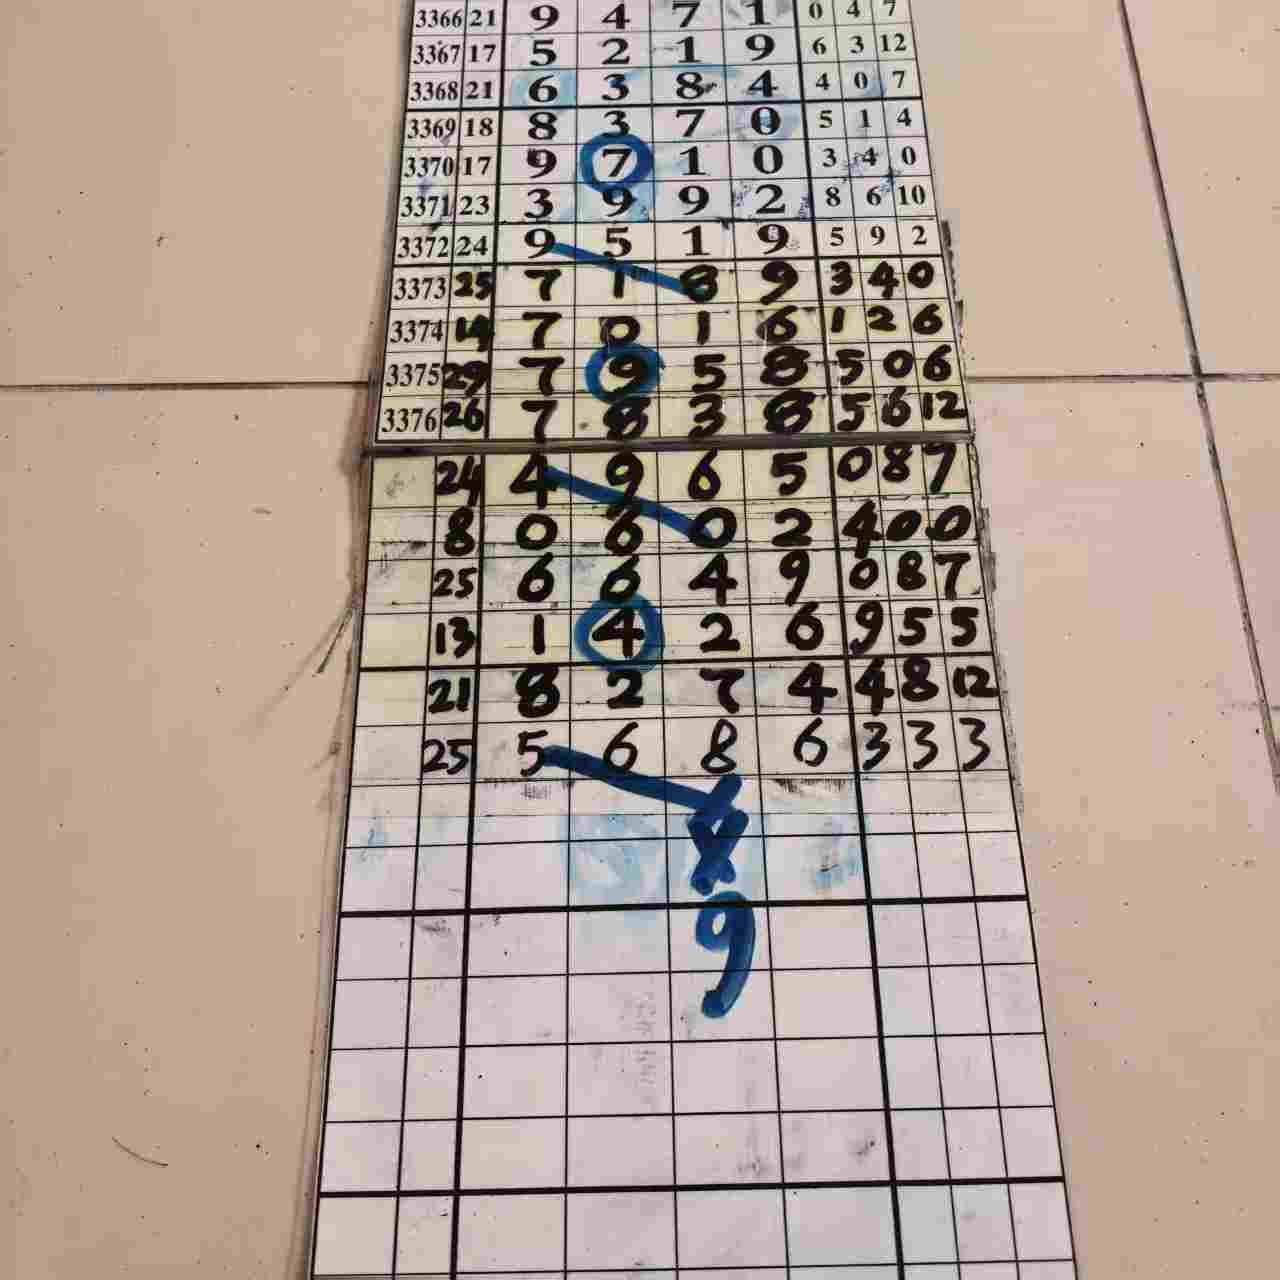 3366 21 9 4 7 1 0 4 7
3367 17 5 2 1 9 6 3 12
3368 21 6 3 8 4 4 0 7
3369 18 8 3 7 0 5 1 4
3370 17 9 7 1 0 3 4 0
3371 23 3 9 9 2 8 6 10
3372 24 9 5 1 9 5 9 2
3373 25 7 1 8 9 3 4 0
3374 14 7 0 1 6 1 2 6
3375 29 7 9 5 8 5 0 6
3376 26 7 8 3 8 5 6 12
24 4 9 6 5 0 8 7
8 0 6 0 2 4 0 0
25 6 6 4 9 0 8 7
13 1 4 2 6 9 5 5
21 8 2 7 4 4 8 12
25 5 6 8 6 3 3 3
X
X
9